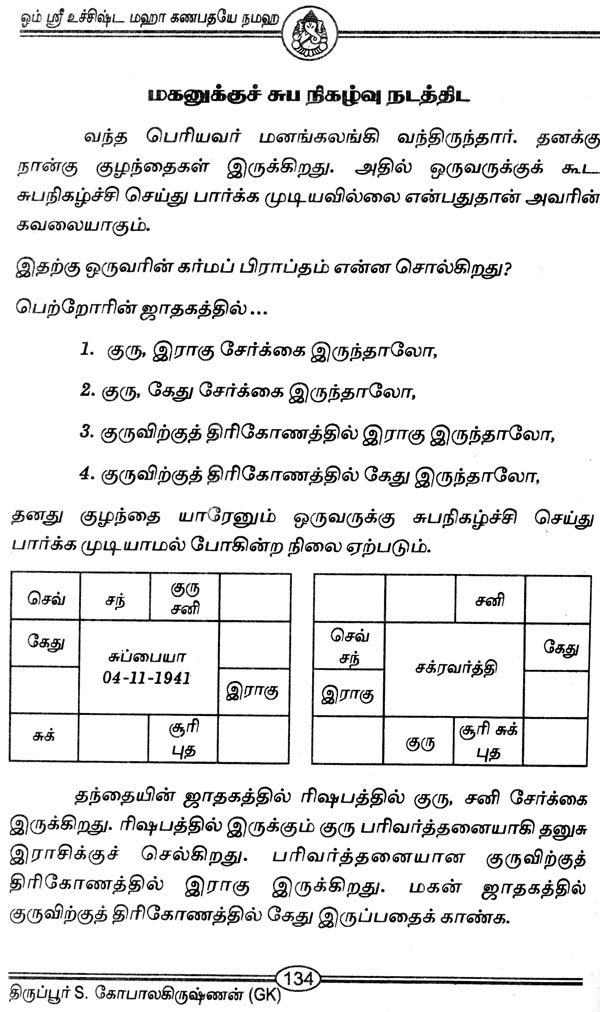 ஓம் ஸ்ரீ உச்சிஷ்ட மஹா கணபதயே நமஹ
மகனுக்குச் சுப நிகழ்வு நடத்திட
வந்த பெரியவர் மனங்கலங்கி வந்திருந்தார். தனக்கு
நான்கு குழந்தைகள் இருக்கிறது. அதில் ஒருவருக்குக் கூட
சுபநிகழ்ச்சி செய்து பார்க்க முடியவில்லை என்பதுதான் அவரின்
கவலையாகும்.
இதற்கு ஒருவரின் கர்மப் பிராப்தம் என்ன சொல்கிறது?
பெற்றோரின் ஜாதகத்தில்...
1. குரு, இராகு சேர்க்கை இருந்தாலோ,
2. குரு, கேது சேர்க்கை இருந்தாலோ,
3. குருவிற்குத் திரிகோணத்தில் இராகு இருந்தாலோ,
4. குருவிற்குத் திரிகோணத்தில் கேது இருந்தாலோ,
தனது குழந்தை யாரேனும் ஒருவருக்கு சுபநிகழ்ச்சி செய்து
பார்க்க முடியாமல் போகின்ற நிலை ஏற்படும்.
செவ் சந் குரு
சனி
கேது
சுப்பையா
04-11-1941
இராகு
சுக் சூரி
புத
சனி
செவ்
சந்
கேது
சக்ரவர்த்தி
இராகு
குரு சூரி சுக்
புத
தந்தையின் ஜாதகத்தில் ரிஷபத்தில் குரு, சனி சேர்க்கை
இருக்கிறது. ரிஷபத்தில் இருக்கும் குரு பரிவர்த்தனையாகி தனுசு
இராசிக்குச் செல்கிறது. பரிவர்த்தனையான குருவிற்குத்
திரிகோணத்தில் இராகு இருக்கிறது. மகன் ஜாதகத்தில்
குருவிற்குத் திரிகோணத்தில் கேது இருப்பதைக் காண்க.
134
திருப்பூர் S. கோபாலகிருஷ்ணன் (GK)